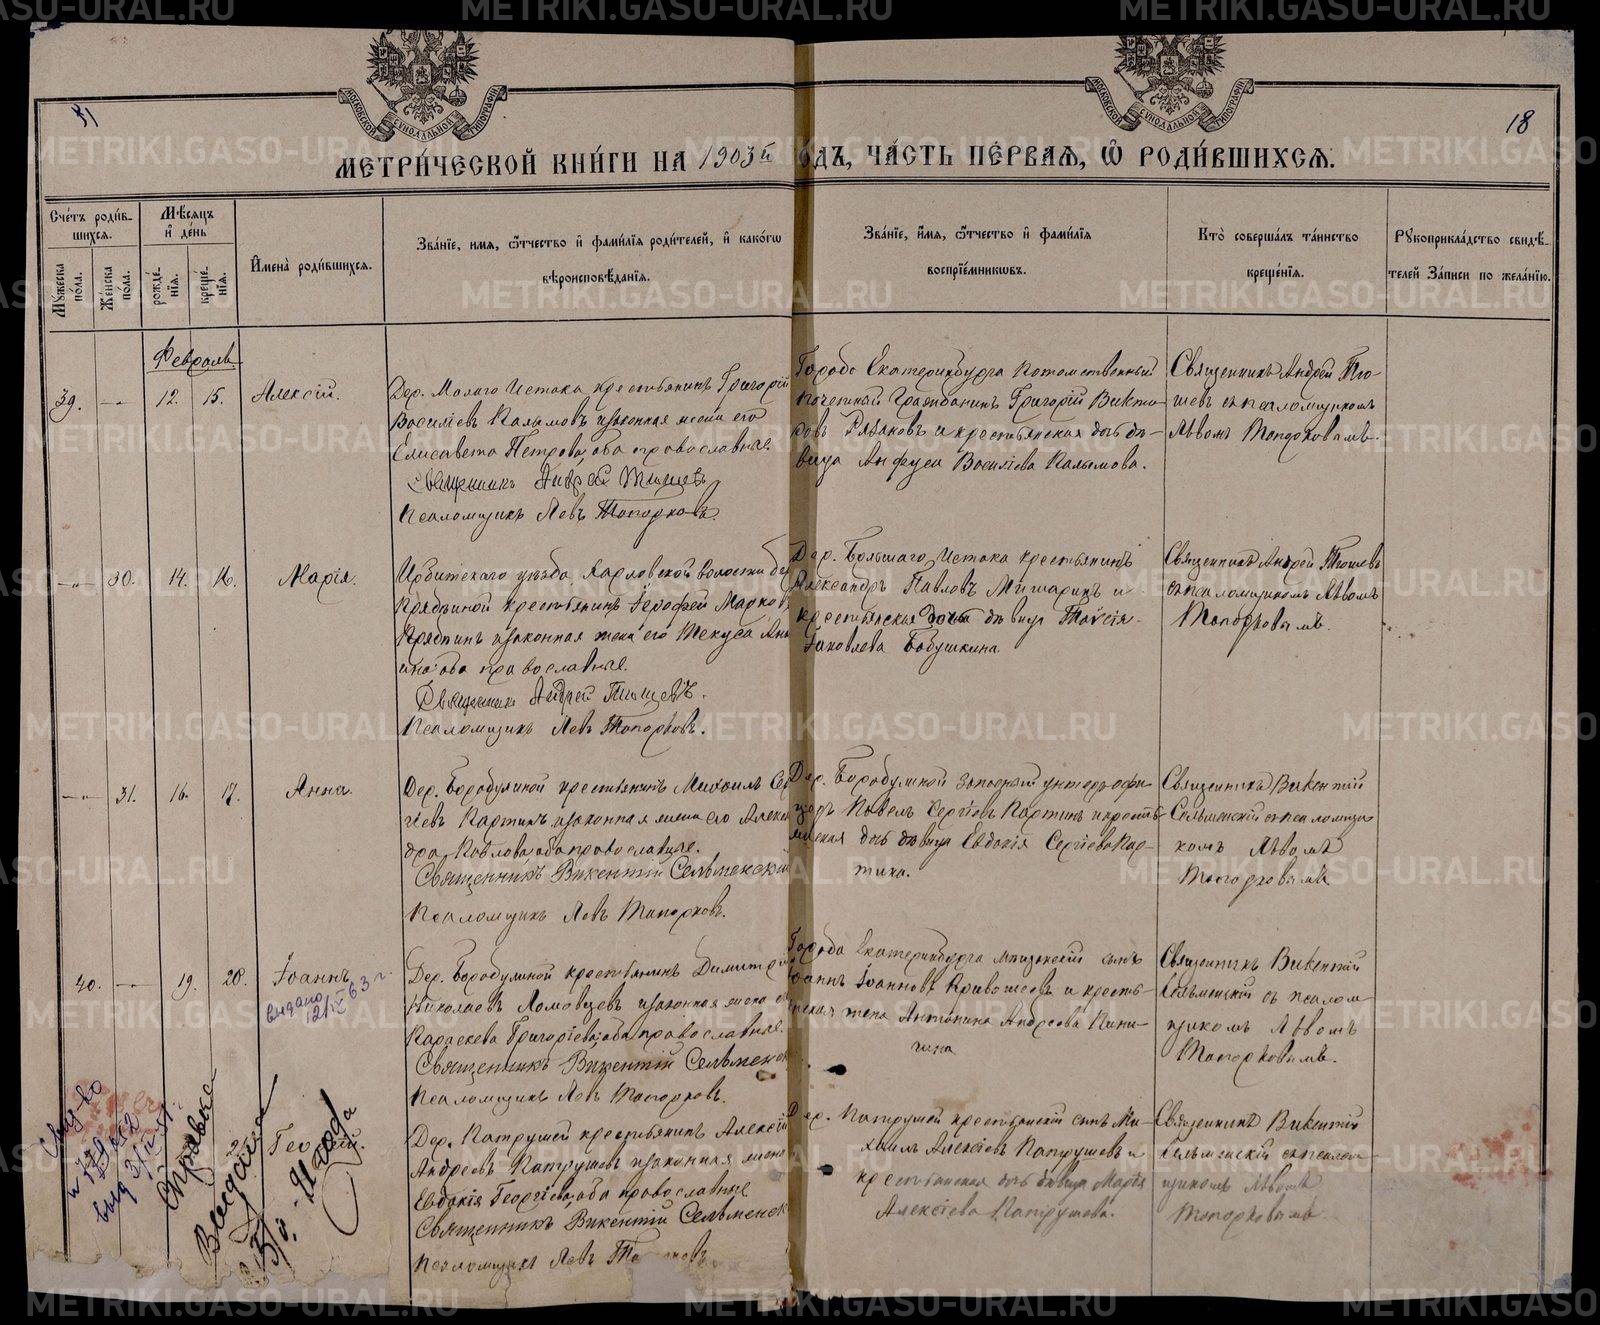 METRIKI.GASO-URAL.RU
18
МОСКОВСКОЙ СѴНОДАЛЬНОЙ ТИПОГРАФІИ
МОСКОВСКОЙ СѴНОДАЛЬНОЙ ТИПОГРАФІИ
МЕТРИ́ЧЕСКОЙ КНИ́ГИ НА 1903й ОДЪ, ЧА́СТЬ ПЕ́РВАЯ, Ѽ РОДИ́ВШИХСЯ.
Сче́тъ роди́вшихся.
Му́жеска по́ла.
Же́нска по́ла.
Мѣ́сяцъ и҆ де́нь
рожде́нїя.
креще́нїя.
И҆мена̀ роди́вшихся.
Зва́нїе, имя, ѻ҆́тчество и҆ фами́лїя роди́телей, и҆ како́гѡ вѣроисповѣ́данїя.
Зва́нїе, и҆́мя, ѻ҆́тчество и҆ фами́лїя воспрїе́мникѡвъ.
Кто̀ соверша́лъ та́инство креще́нїя.
Рукоприкла́дство свидѣ́телей За́писи по жела́нїю.
Февраль
39. 12. 15. Алексій.
Дер. Малаго Истока крестьянинъ Григорій
Василіевъ Калымовъ и законная жена его
Елисавета Петрова, оба православные.
Священникъ Андрей Тюшевъ
Псаломщикъ Левъ Топорковъ.
Города Екатеринбурга Потомственный
почетный Гражданинъ Григорій Викто-
ровъ Рязановъ и крестьянская дочь дѣ-
вица Анфуса Василіева Калымова.
Священникъ Андрей Тю-
шевъ съ псаломщикомъ
Львомъ Топорковымъ.
30. 14. 16. Марія.
Ирбитскаго уѣзда, волости
крестьянинъ Іерофей Марковъ
и законная жена его
оба православные.
Священникъ Андрей Тюшевъ.
Псаломщикъ Левъ Топорковъ.
Дер. Большаго Истока крестьянинъ
Александръ Павловъ Мишаринъ и
крестьянская дочь дѣвица Таисія
Іаковлева Бабушкина.
Священникъ Андрей Тюшевъ
съ псаломщикомъ Львомъ
Топорковымъ.
31. 16. 17. Анна.
Дер. Бородулиной крестьянинъ Михаилъ Сер
гіевъ Картинъ и законная жена его Алекса
дра Павлова, оба православные.
Священникъ Викентій Сельменскій
Псаломщикъ Левъ Топорковъ.
Дер. Бородулиной запасный унтеръ-офи-
церъ Павелъ Сергіевъ Картинъ и кресть-
янская дочь дѣвица Евдокія Сергіева Кар-
тина.
Священникъ Викентій
Сельменскій съ псаломщи-
комъ Львомъ
Топорковымъ.
40. 19. 20. Іоаннъ.
выдано
63 г.
Дер. Бородулиной крестьянинъ Димитрій
Николаевъ Ломовцевъ и законная жена е
Григоріева, оба православные.
Священникъ Викентій Сельменск
Псаломщикъ Левъ Топорковъ.
Города Екатеринбурга мѣщанскій сынъ
Іоаннъ Іоанновъ Кривошеевъ и кресть-
янская жена Антонина Андреева

Священникъ Викентій
Сельменскій съ псалом-
щикомъ Львомъ
Топорковымъ.
Справка
Выдана
года
Гео ій.
Дер. Патрушей крестьянинъ Алексій
Андреевъ Патрушевъ и законная жена
Евдокія Георгіева, оба православные
Священникъ Викентій Сельменск
Псаломщикъ Левъ То ковъ
Дер. Патрушей крестьянскій сынъ Ми-
хаилъ Алексіевъ Патрушевъ и
крестьянская дочь дѣвица Марія
Алексіева Патрушева.
Священникъ Викентій
Сельменскій съ псалом-
щикомъ Львомъ
Топорковымъ